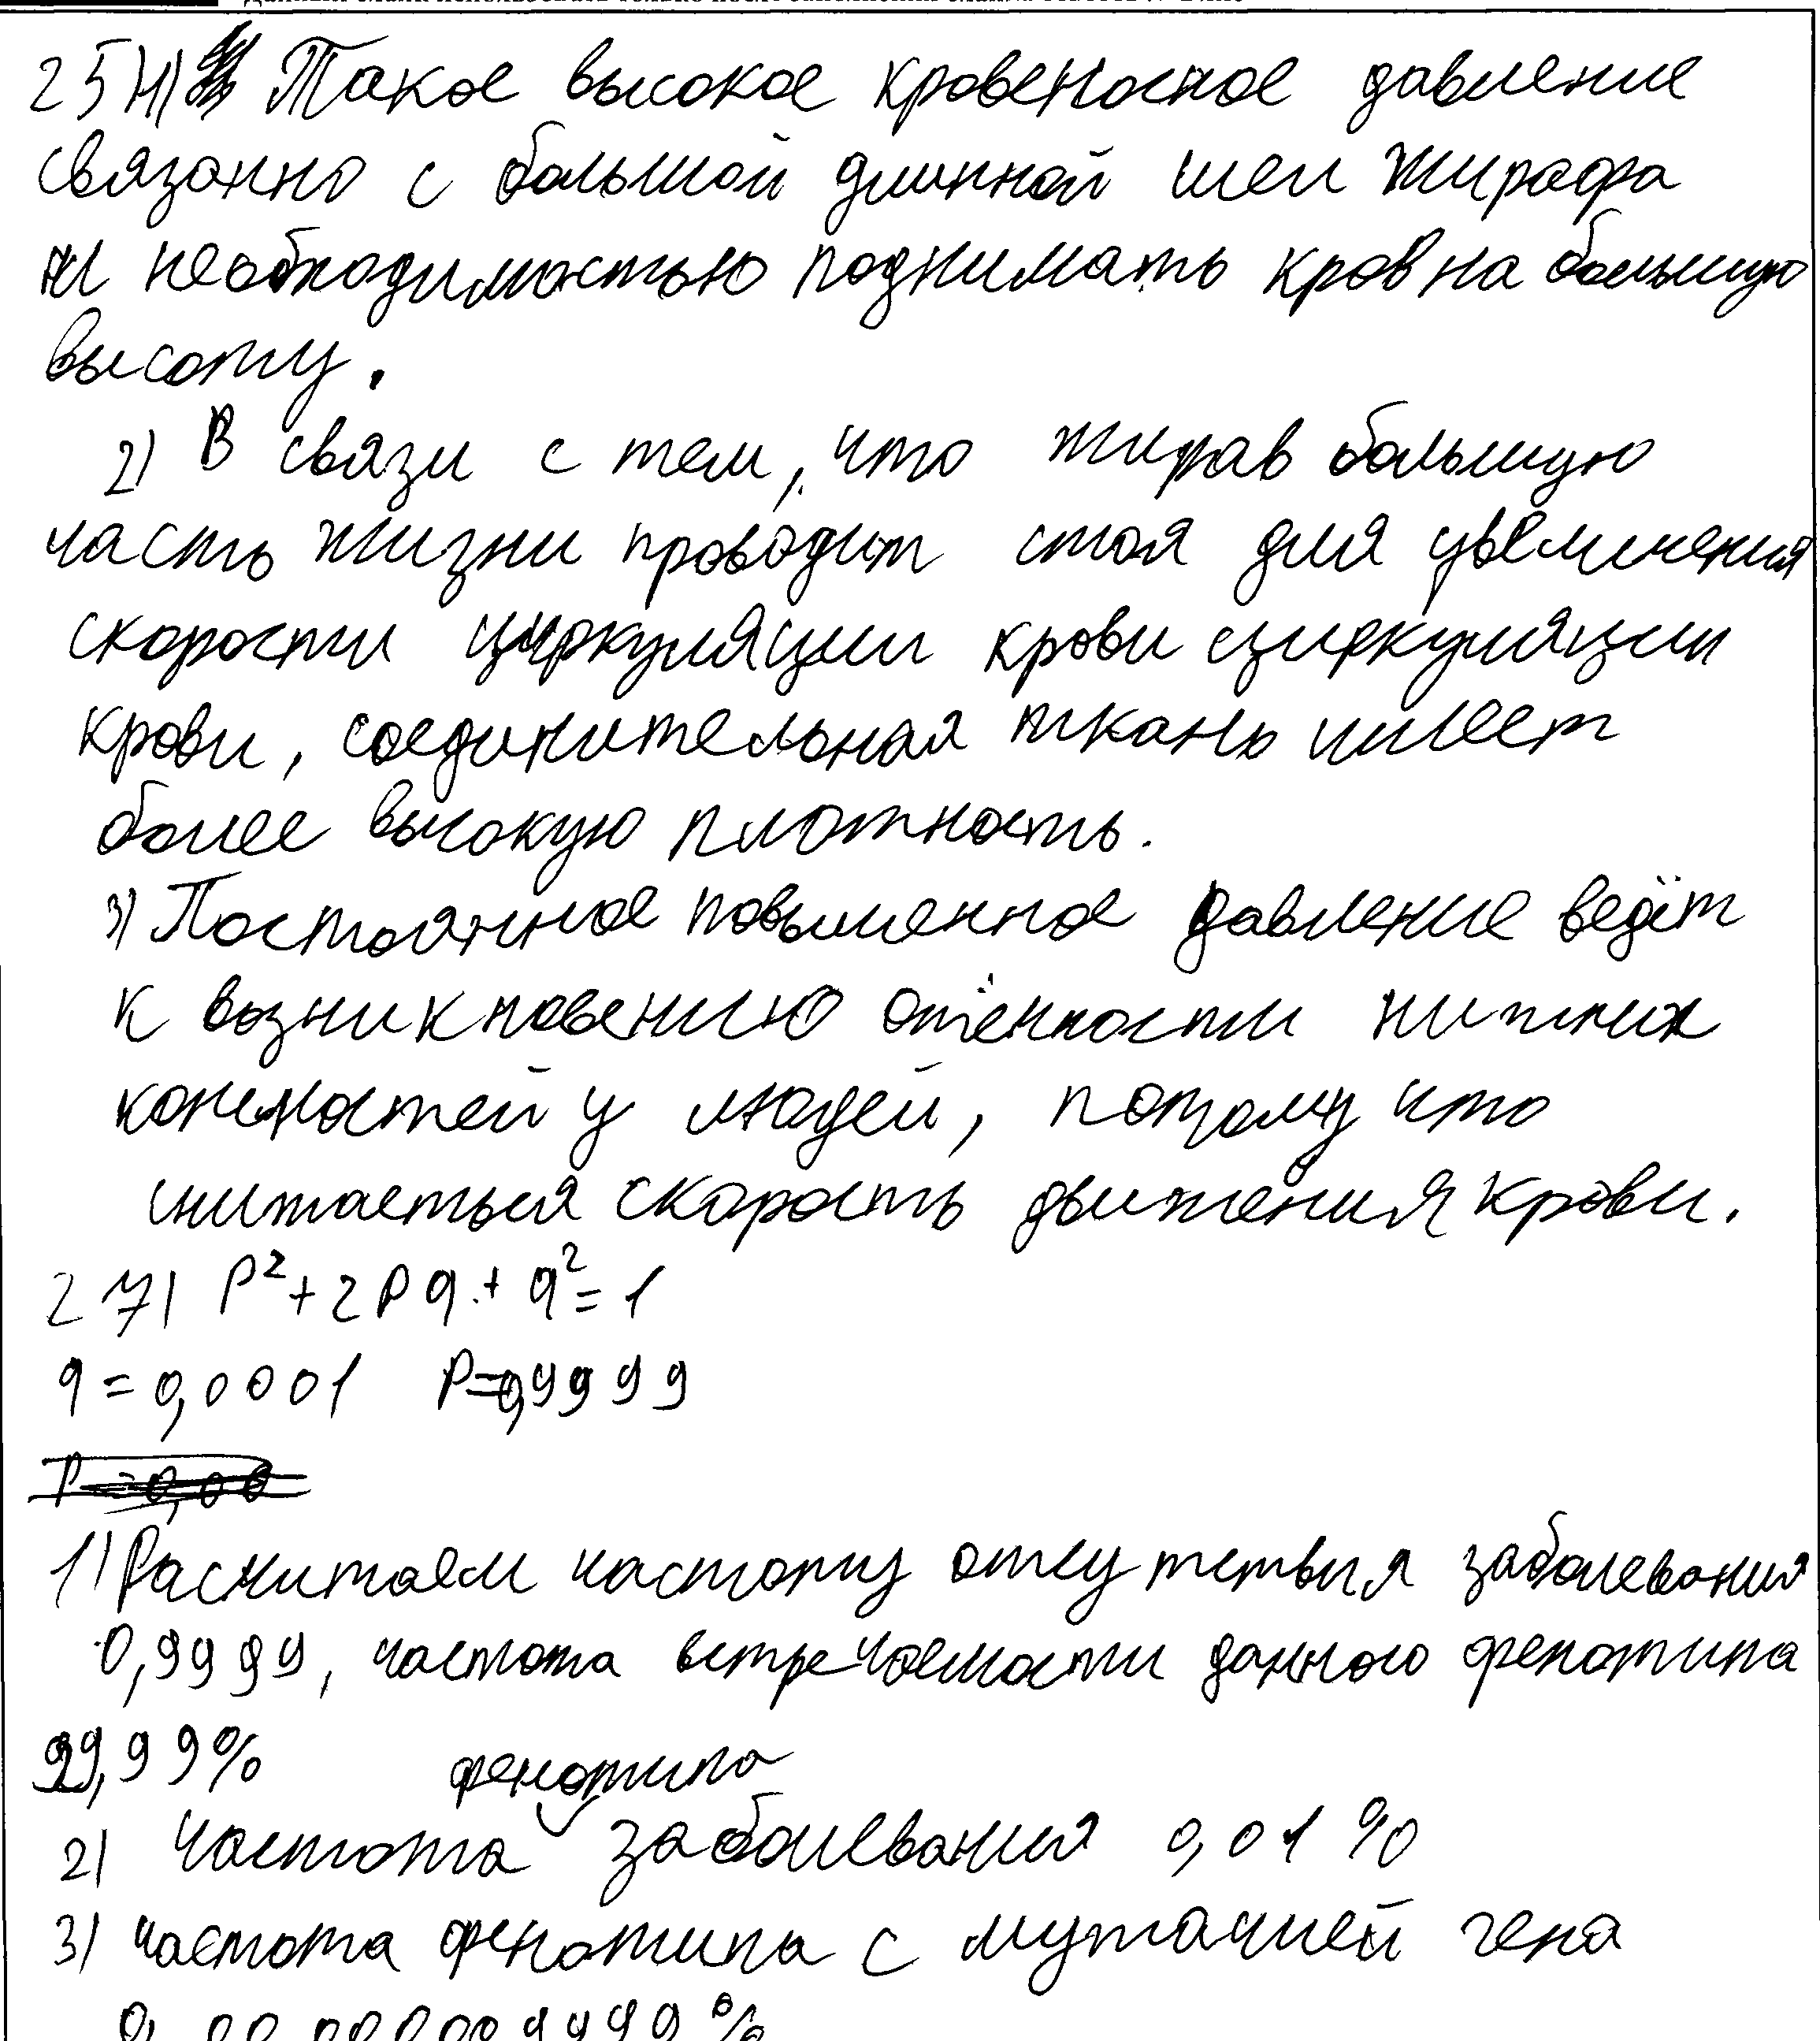 25 1) Такое высокое кровеносное давление
связанно с большой длинной шеи жирафа
и необходимостью поднимать кров на большую
высоту.
2) В связи с тем, что жирав большую
часть жизни проводит стоя для увеличения
скорости циркуляции крови циркуляции
крови, соединительная ткань имеет
более высокую плотность.
3) Постоянное повышенное давление ведёт
к возникновению отёчности нижних
конечностей у людей, потому что
снижаеться скорость движения крови.
27) P²+2Pq+q²=1
q=0,0001 P=0,9999
P=0,00
1) Расчитаем частоту отсутствия заболевания
0,9999, частота встречаемости данного фенотипа
99,99%
фенотипа
2) Частота заболевания 0,01%
3) частота фенотипа с мутацией гена